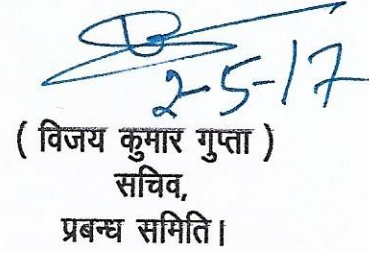 2-5-17
( विजय कुमार गुप्ता )
सचिव,
प्रबन्ध समिति।